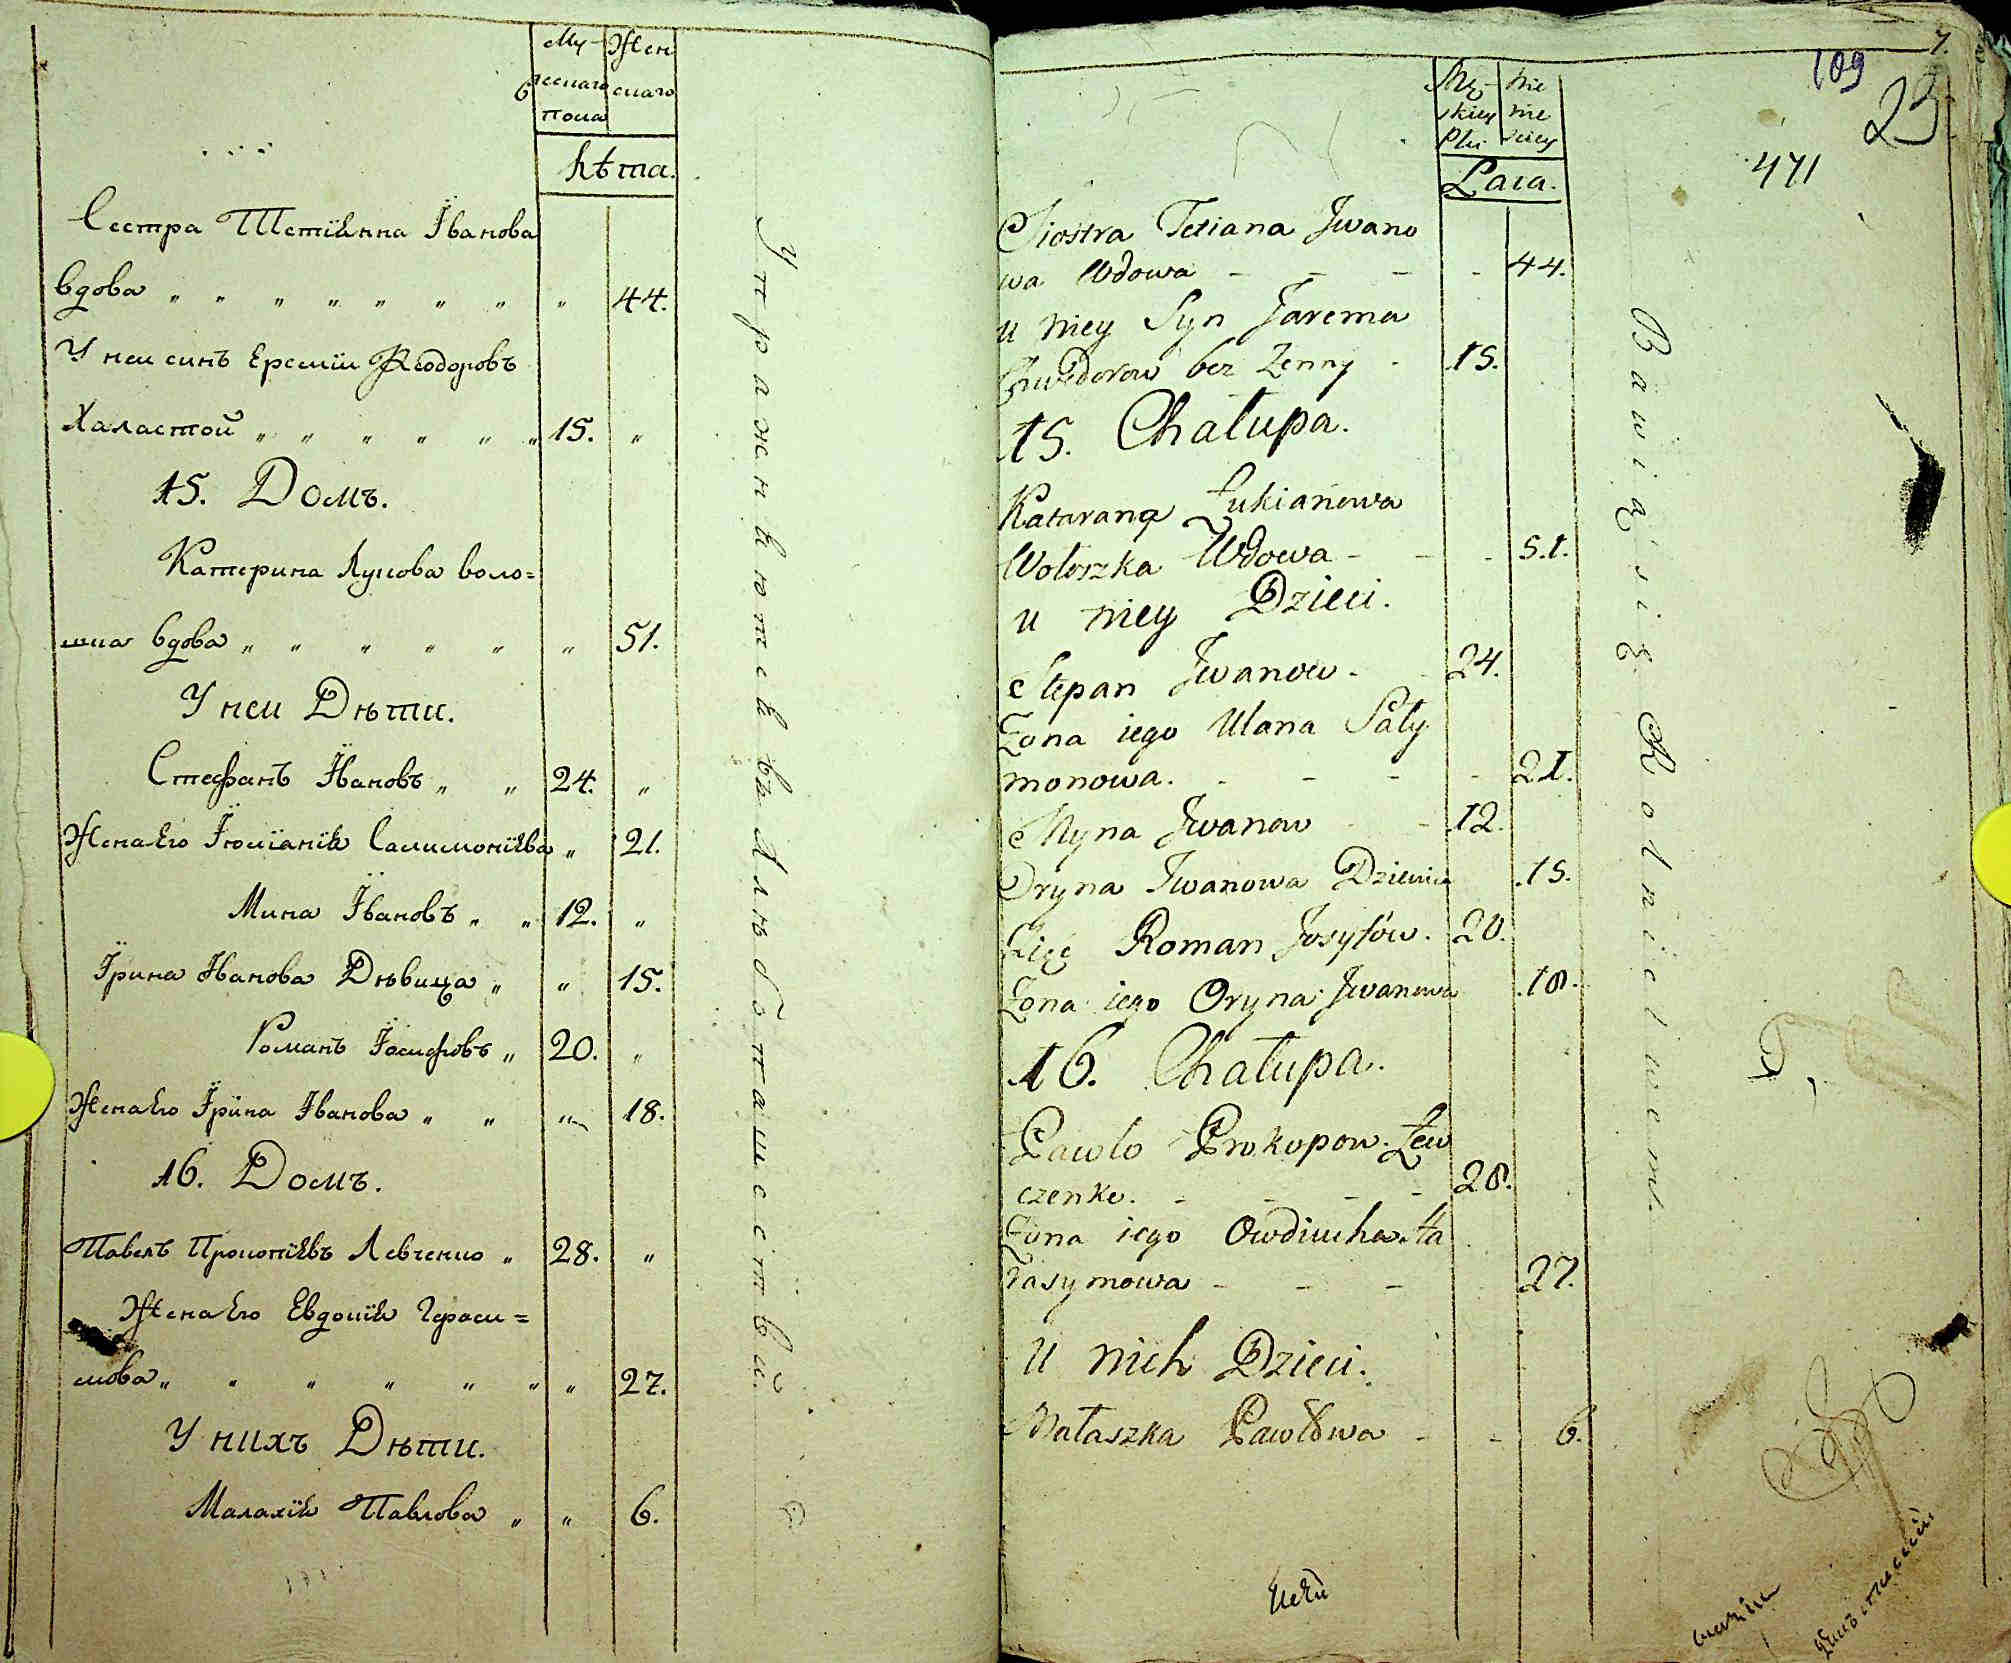 Му- Жен
жескаго скаго
пола
Лѣта.
Сестра Тетіанна Іванова
вдова „ „ „ „ „ „ „ „ 44.
У неи синъ Еремѣи Ѳеодоровъ
Халастой „ „ „ „ „ „ 15. „
15. Домъ.
Катерина Лукова воло=
шка вдова „ „ „ „ „ „ 51.
У неи Дѣти.
Стефанъ Івановъ „ „ 24. „
Жена Его Іюліанія Самимонієва „ 21.
Мина Івановъ „ „ 12. „
Ірина Іванова Дѣвица „ „ 15.
Романъ Іосифовъ „ 20. „
Жена Его Іріна Іванова „ „ „ 18.
16. Домъ.
Павелъ Прокопіевъ Левченко „ 28. „
Жена Его Евдокія Гераси=
мова „ „ „ „ „ „ „ 27.
У нихъ Дѣти.
Малахія Павлова „ „ 6.
Упражняются въ хлѣбопашествѣ.
7.
109
23
471
Mę- nie
skiey nie
Płci sciey
Lata.
Siostra Tetiana Jwano
wa Wdowa - - - - 44.
u niey Syn Jarema
Chwedorow bez Zenny - 15.
15. Chałupa.
Kataryna Łukianowa
Wołoszka Wdowa - - - 51.
u niey Dzieci.
Stepan Jwanow - - 24.
Żona iego Ulana Sały
monowa. - - - - 21.
Myna Jwanow - - 12.
Oryna Jwanowa Dziewica 15.
Zięć Roman Josyfów. 20.
Żona iego Oryna Jwanowa 18.
16. Chałupa.
Pawło Prokopow Lew
czenko. - - - - 28.
Żona iego Owdiucha Ha
rasymowa - - - 27.
U nich Dzieci.
Małaszka Pawłowa - - 6.
Bawią się Rolnictwem.